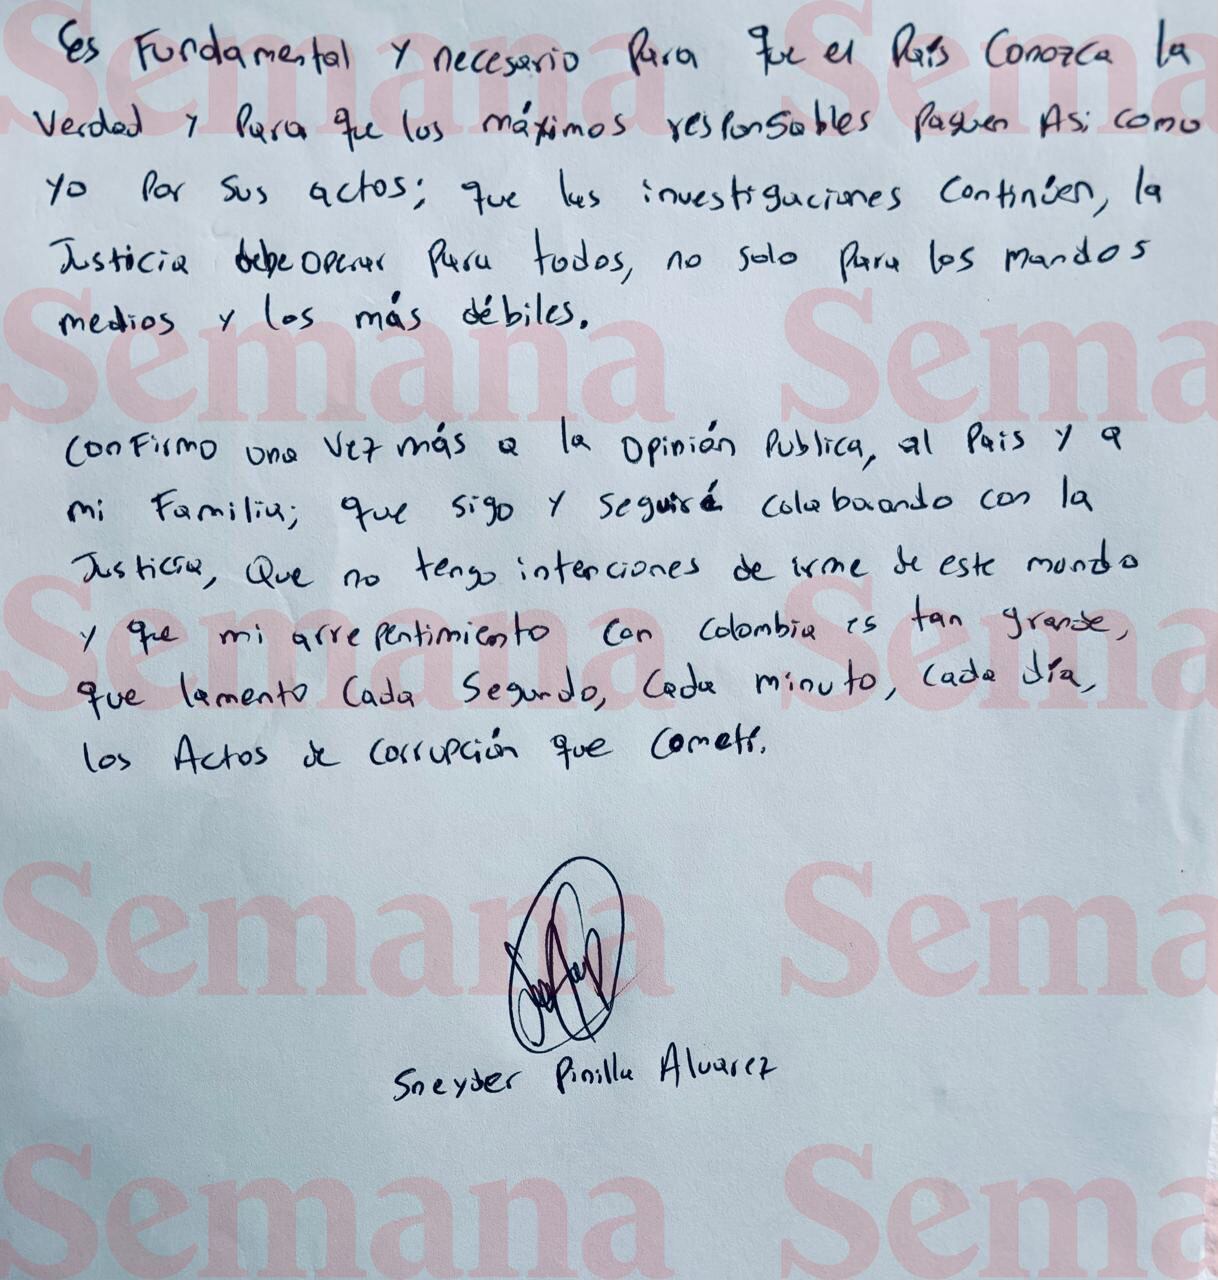 Es Fundamental y necesario Para que el País Conozca la
Verdad y Para que los máximos responsables Paguen Asi como
yo Por sus actos; que las investigaciones Continúen, la
Justicia debe operar Para todos, no solo Para los mandos
medios y los más débiles.
Confirmo una vez más a la Opinión Publica, al Pais y a
mi Familia; que sigo y seguiré colaborando con la
Justicia, Que no tengo intenciones de irme de este mundo
y que mi arrepentimiento con Colombia es tan grande,
que lamento Cada Segundo, Cada minuto, Cada día,
los Actos de Corrupción que Cometí.
Sneyder Pinilla Alvarez
Semana Sema
Semana Sema
Semana Sema
Semana Sema
Semana Sema